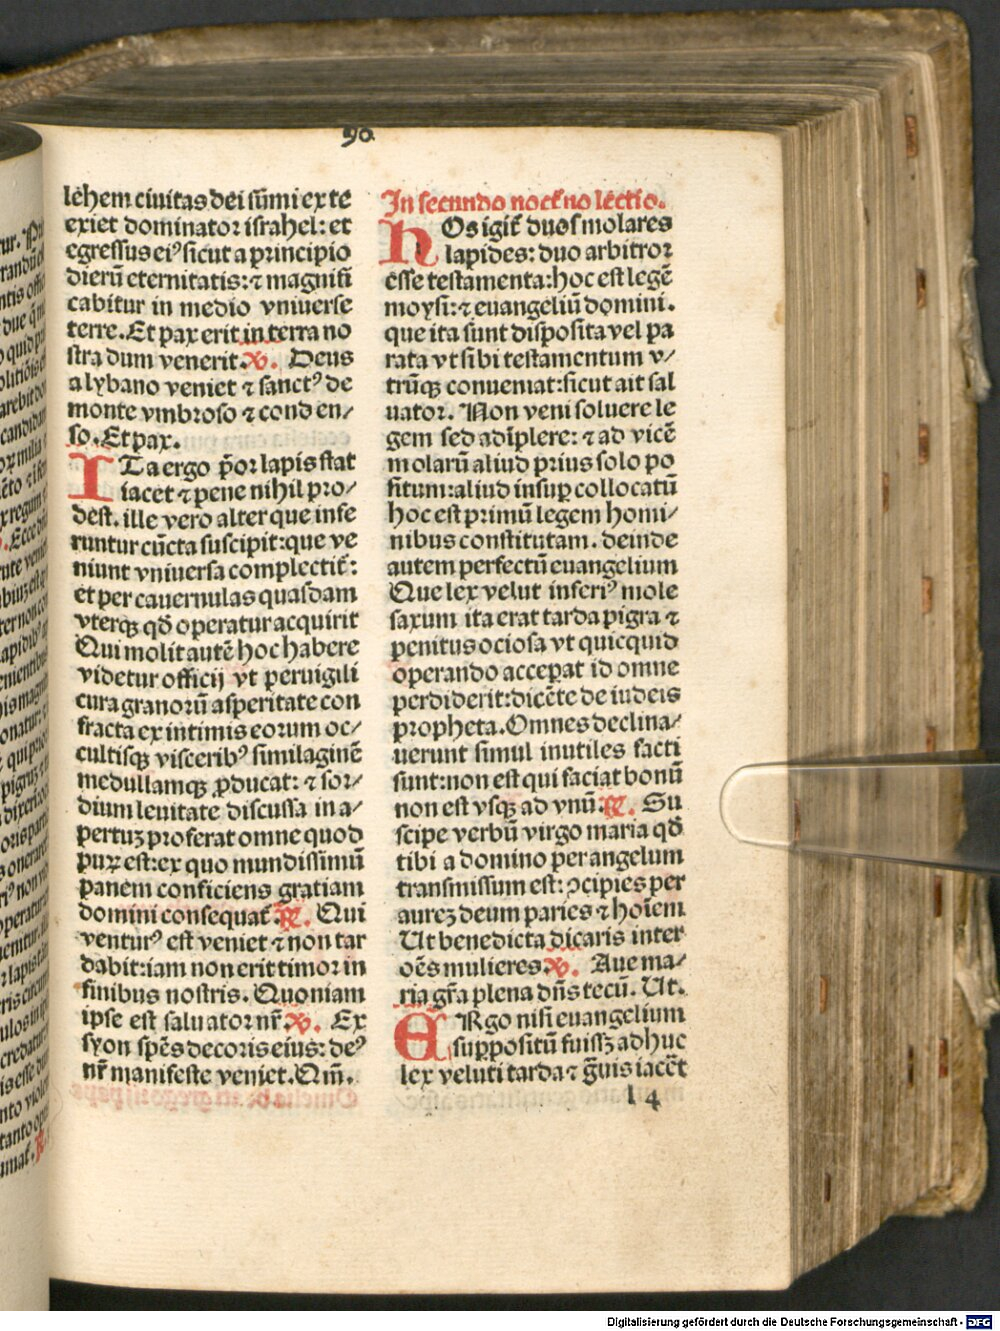 90
lehem ciuitas dei sūmi ex te
exiet dominator israhel: et
egressus eiꝰ sicut a principio
dierū eternitatis: ⁊ magnifi
cabitur in medio vniuerse
terre. Et pax erit in terra no
stra dum venerit. ℣. Deus
a lybano veniet ⁊ sanctꝰ de
monte vmbroso ⁊ conden/
so. Et pax.
ITa ergo p̄or lapis stat
iacet ⁊ pene nihil pro/
dest. ille vero alter que infe
runtur cūcta suscipit: que ve
niunt vniuersa complectit̄:
et per cauernulas quasdam
vterqꝫ qd̄ operatur acquirit
Qui molit autē hoc habere
videtur officij vt peruigili
cura granorū asperitate con
fracta ex intimis eorum oc/
cultisqꝫ visceribꝰ similaginē
medullamqꝫ ꝓducat: ⁊ sor/
dium leuitate discussa in a/
pertuꝫ proferat omne quod
puꝝ est: ex quo mundissimū
panem conficiens gratiam
domini consequat̄. ℟. Qui
venturꝰ est veniet ⁊ non tar
dabit: iam non erit timor in
finibus nostris. Quoniam
ipse est saluator nr̄. ℣. Ex
syon spēs decoris eius: deꝰ
nr̄ manifeste veniet. Qm̄.
In secundo noct̄no lectio.
HOs igit̄ duos molares
lapides: duo arbitror
esse testamenta: hoc est legē
moysi: ⁊ euangeliū domini.
que ita sunt disposita vel pa
rata vt sibi testamentum v/
trūqꝫ conueniat: sicut ait sal
uator. Non veni soluere le
gem sed adīplere: ⁊ ad vicē
molarū aliud prius solo po
situm: aliud insuꝑ collocatū
hoc est primū legem homi/
nibus constitutam. deinde
autem perfectū euangelium
Que lex velut inferiꝰ mole
saxum ita erat tarda pigra ⁊
penitus ociosa vt quicquid
operando accepat id omne
perdiderit: dicēte de iudeis
propheta. Omnes declina/
uerunt simul inutiles facti
sunt: non est qui faciat bonū
non est vsqꝫ ad vnū. ℟. Su
scipe verbū virgo maria qd̄
tibi a domino per angelum
transmissum est: ꝯcipies per
aureꝫ deum paries ⁊ hoīem
Ut benedicta dicaris inter
oēs mulieres. ℣. Aue ma/
ria gr̄a plena dn̄s tecū. Ut.
ERgo nisi euangelium
suppositū fuissꝫ adhuc
lex veluti tarda ⁊ ḡuis iacēt
l 4
Digitalisierung gefördert durch die Deutsche Forschungsgemeinschaft - DFG